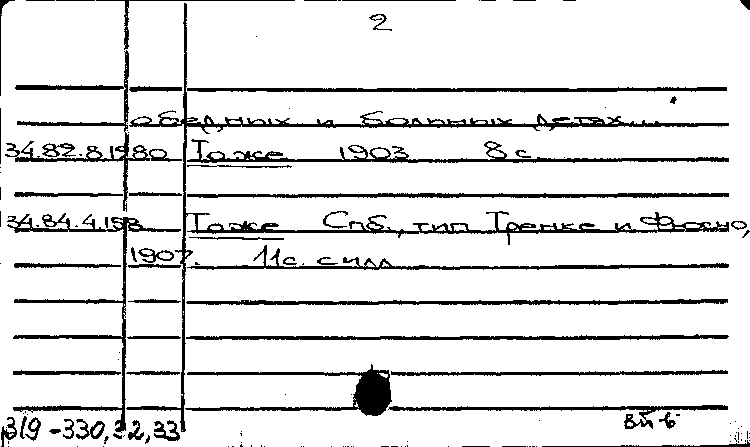 2
о бедных и больных детях...
34.82.8.1980 То же 1903 8 с.
34.84.4.198 То же Спб., тип Тренке и Фюсно,
1907. 11 с. с илл
319-330, 32, 33